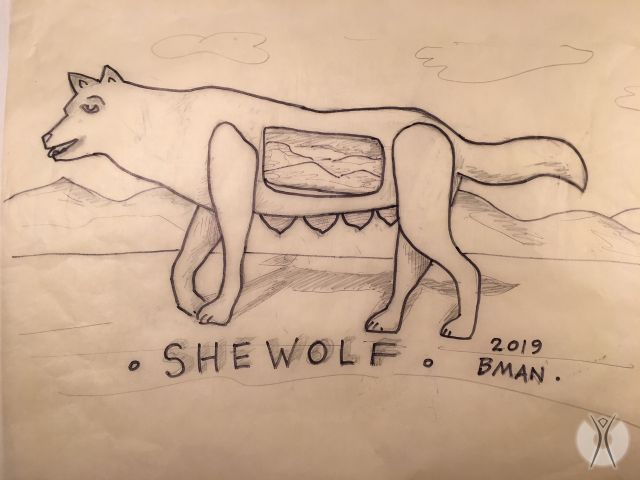 • SHEWOLF •
2019
BMAN.